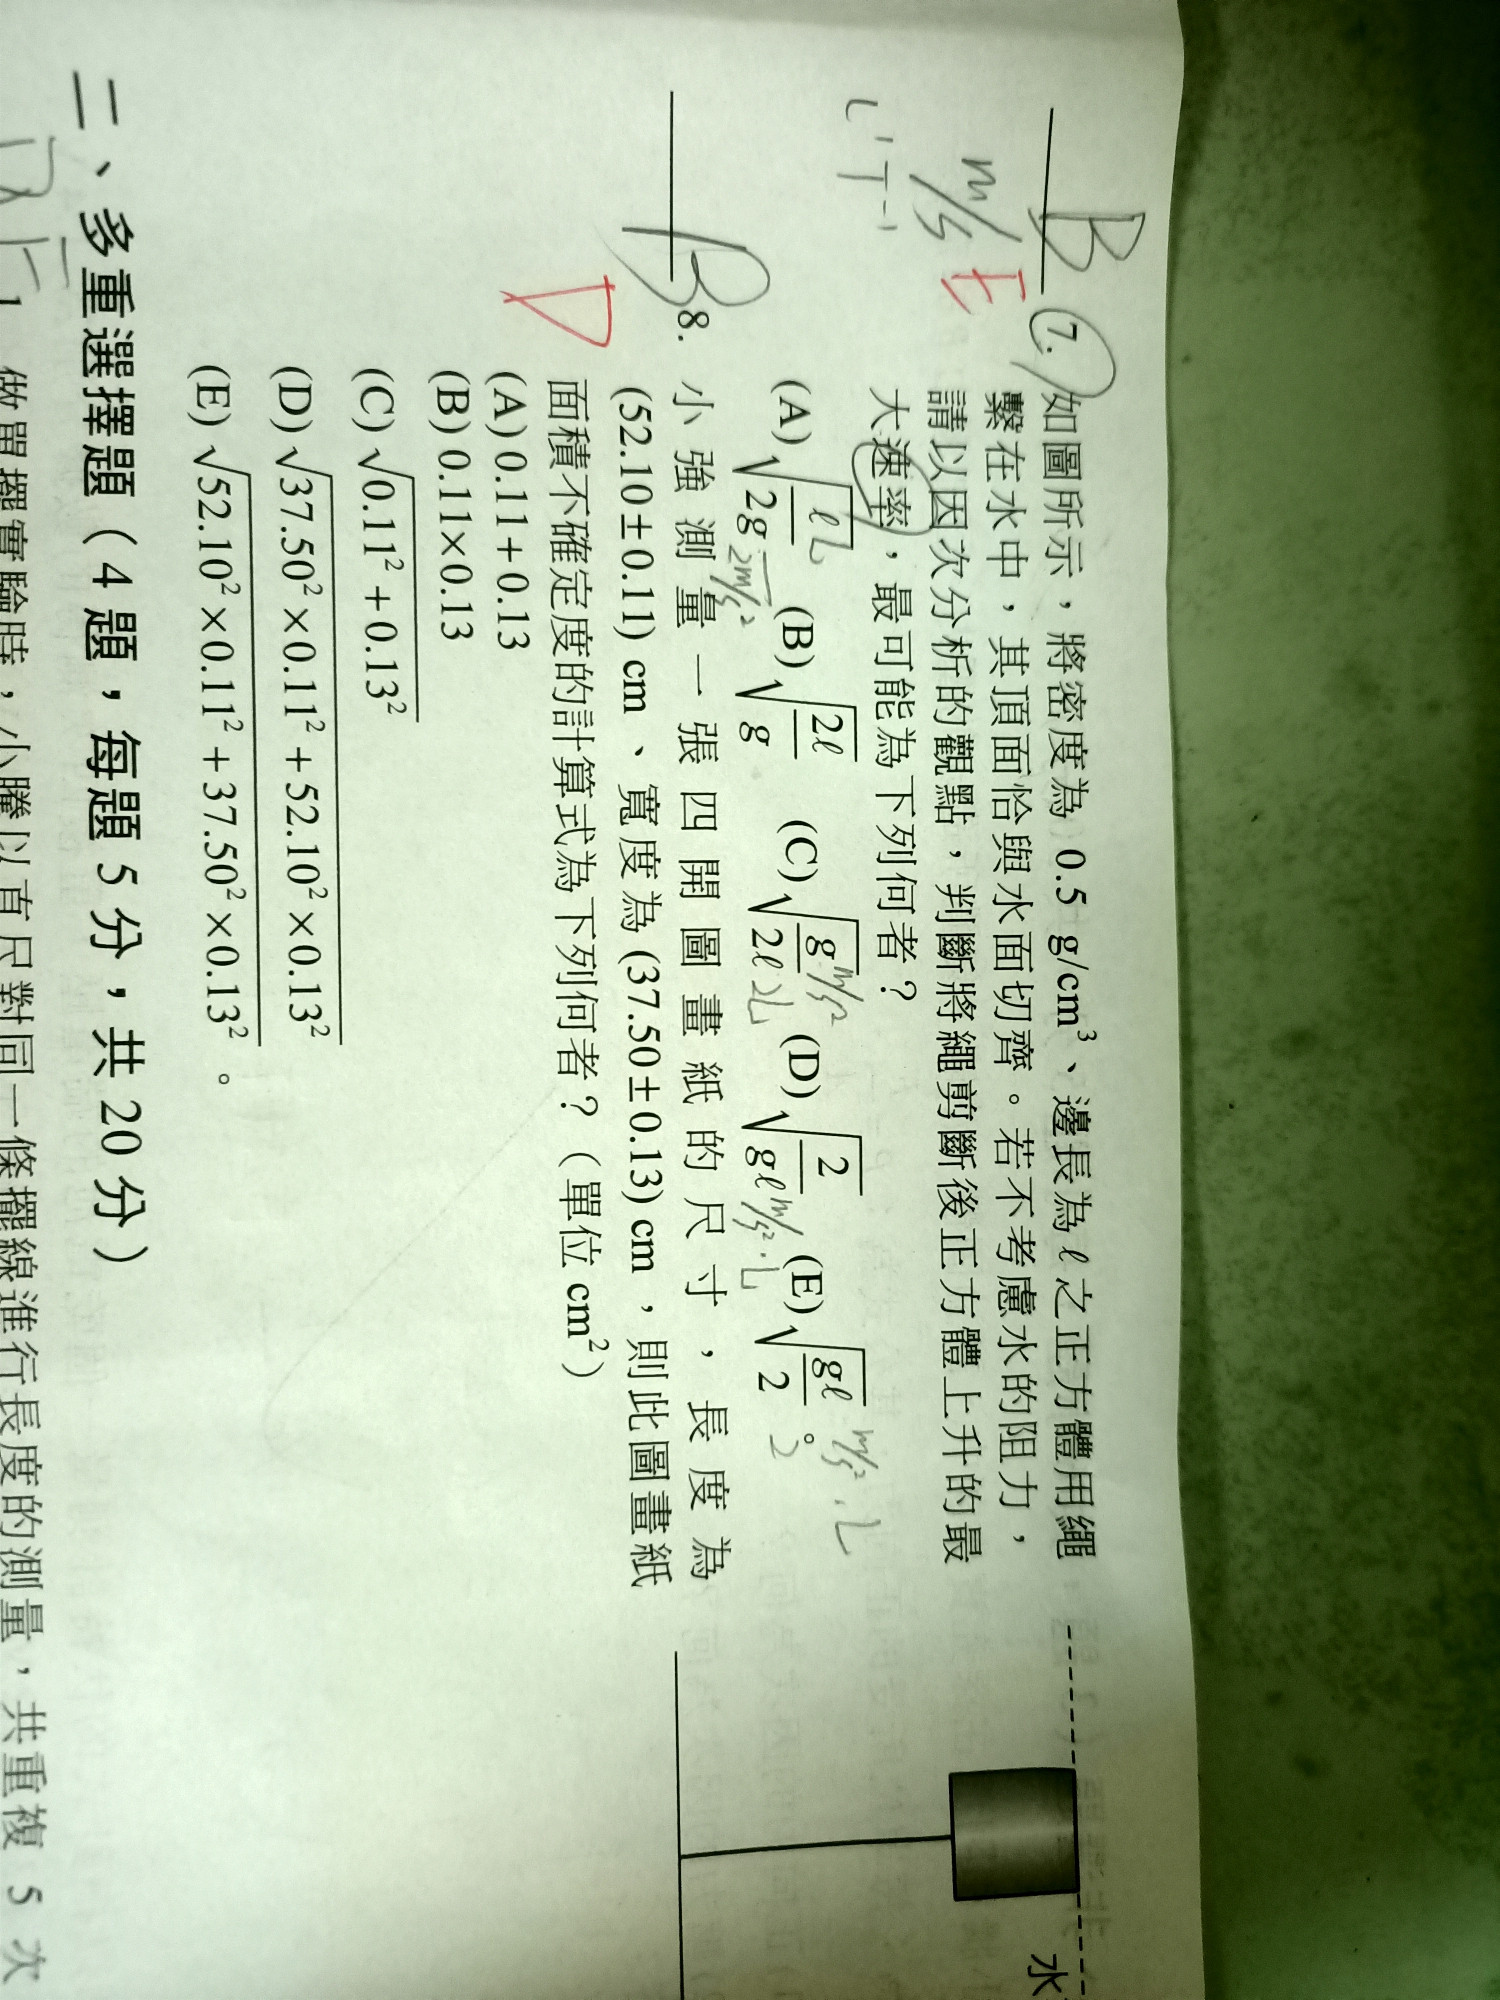 B
E
m/s
L¹T⁻¹
7. 如圖所示，將密度為 0.5 g/cm³、邊長為 ℓ 之正方體用繩
繫在水中，其頂面恰與水面切齊。若不考慮水的阻力，
請以因次分析的觀點，判斷將繩剪斷後正方體上升的最
大速率，最可能為下列何者？
(A) √(ℓ/2g) (B) √(2ℓ/g) (C) √(g/2ℓ) (D) √(2/gℓ) (E) √(gℓ/2)。
L 2m/s² m/s² 2L m/s²·L m/s²·L 2
水
B
D
8. 小強測量一張四開圖畫紙的尺寸，長度為
(52.10±0.11) cm、寬度為 (37.50±0.13) cm，則此圖畫紙
面積不確定度的計算式為下列何者？（單位 cm²）
(A) 0.11+0.13
(B) 0.11×0.13
(C) √(0.11²+0.13²)
(D) √(37.50²×0.11²+52.10²×0.13²)
(E) √(52.10²×0.11²+37.50²×0.13²)。
二、多重選擇題（4 題，每題 5 分，共 20 分）
1. 做單擺實驗時，小騰以直尺對同一條擺線進行長度的測量，共重複 5 次